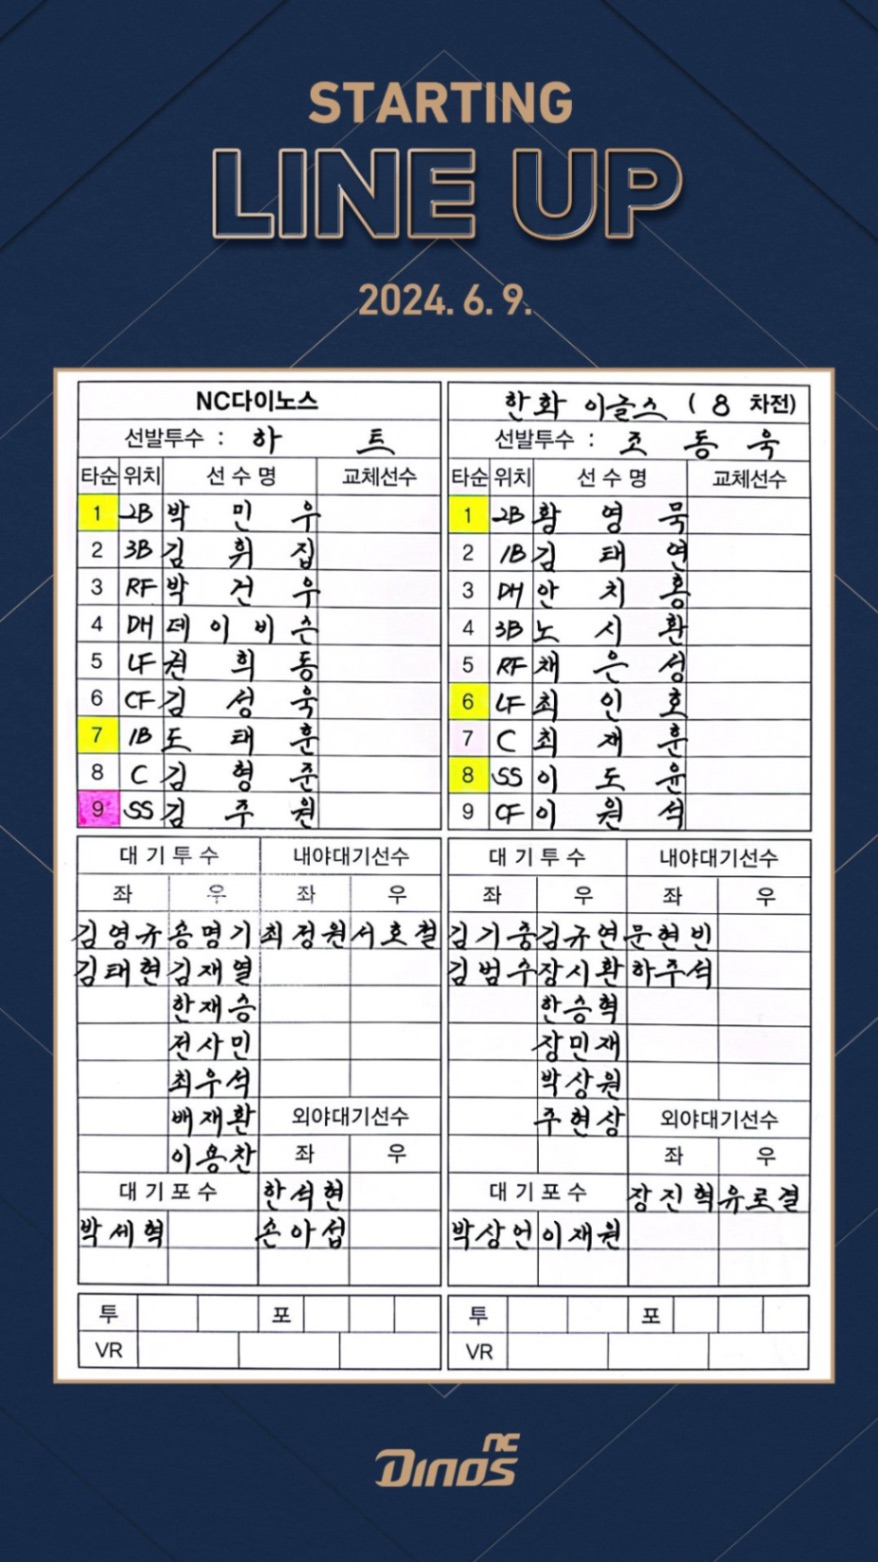 STARTING
LINE UP
2024. 6. 9.
NC다이노스
선발투수 : 하 트
타순 위치 선수명 교체선수
1 2B 박민우
2 3B 김휘집
3 RF 박건우
4 DH 데이비슨
5 LF 권희동
6 CF 김성욱
7 1B 도태훈
8 C 김형준
9 SS 김주원
대기투수 내야대기선수
좌 우 좌 우
김영규 송명기 최정원 서호철
김태현 김재열
한재승
전사민
최우석
배재환 외야대기선수
이용찬 좌 우
대기포수 한석현
박세혁 손아섭
투 포
VR
한화 이글스 ( 8 차전)
선발투수 : 조동욱
타순 위치 선수명 교체선수
1 2B 황영묵
2 1B 김태연
3 DH 안치홍
4 3B 노시환
5 RF 채은성
6 LF 최인호
7 C 최재훈
8 SS 이도윤
9 CF 이원석
대기투수 내야대기선수
좌 우 좌 우
김기중 김규연 문현빈
김범수 장시환 하주석
한승혁
장민재
박상원
주현상 외야대기선수
좌 우
대기포수 장진혁 유로결
박상언 이재원
투 포
VR
nc
Dinos